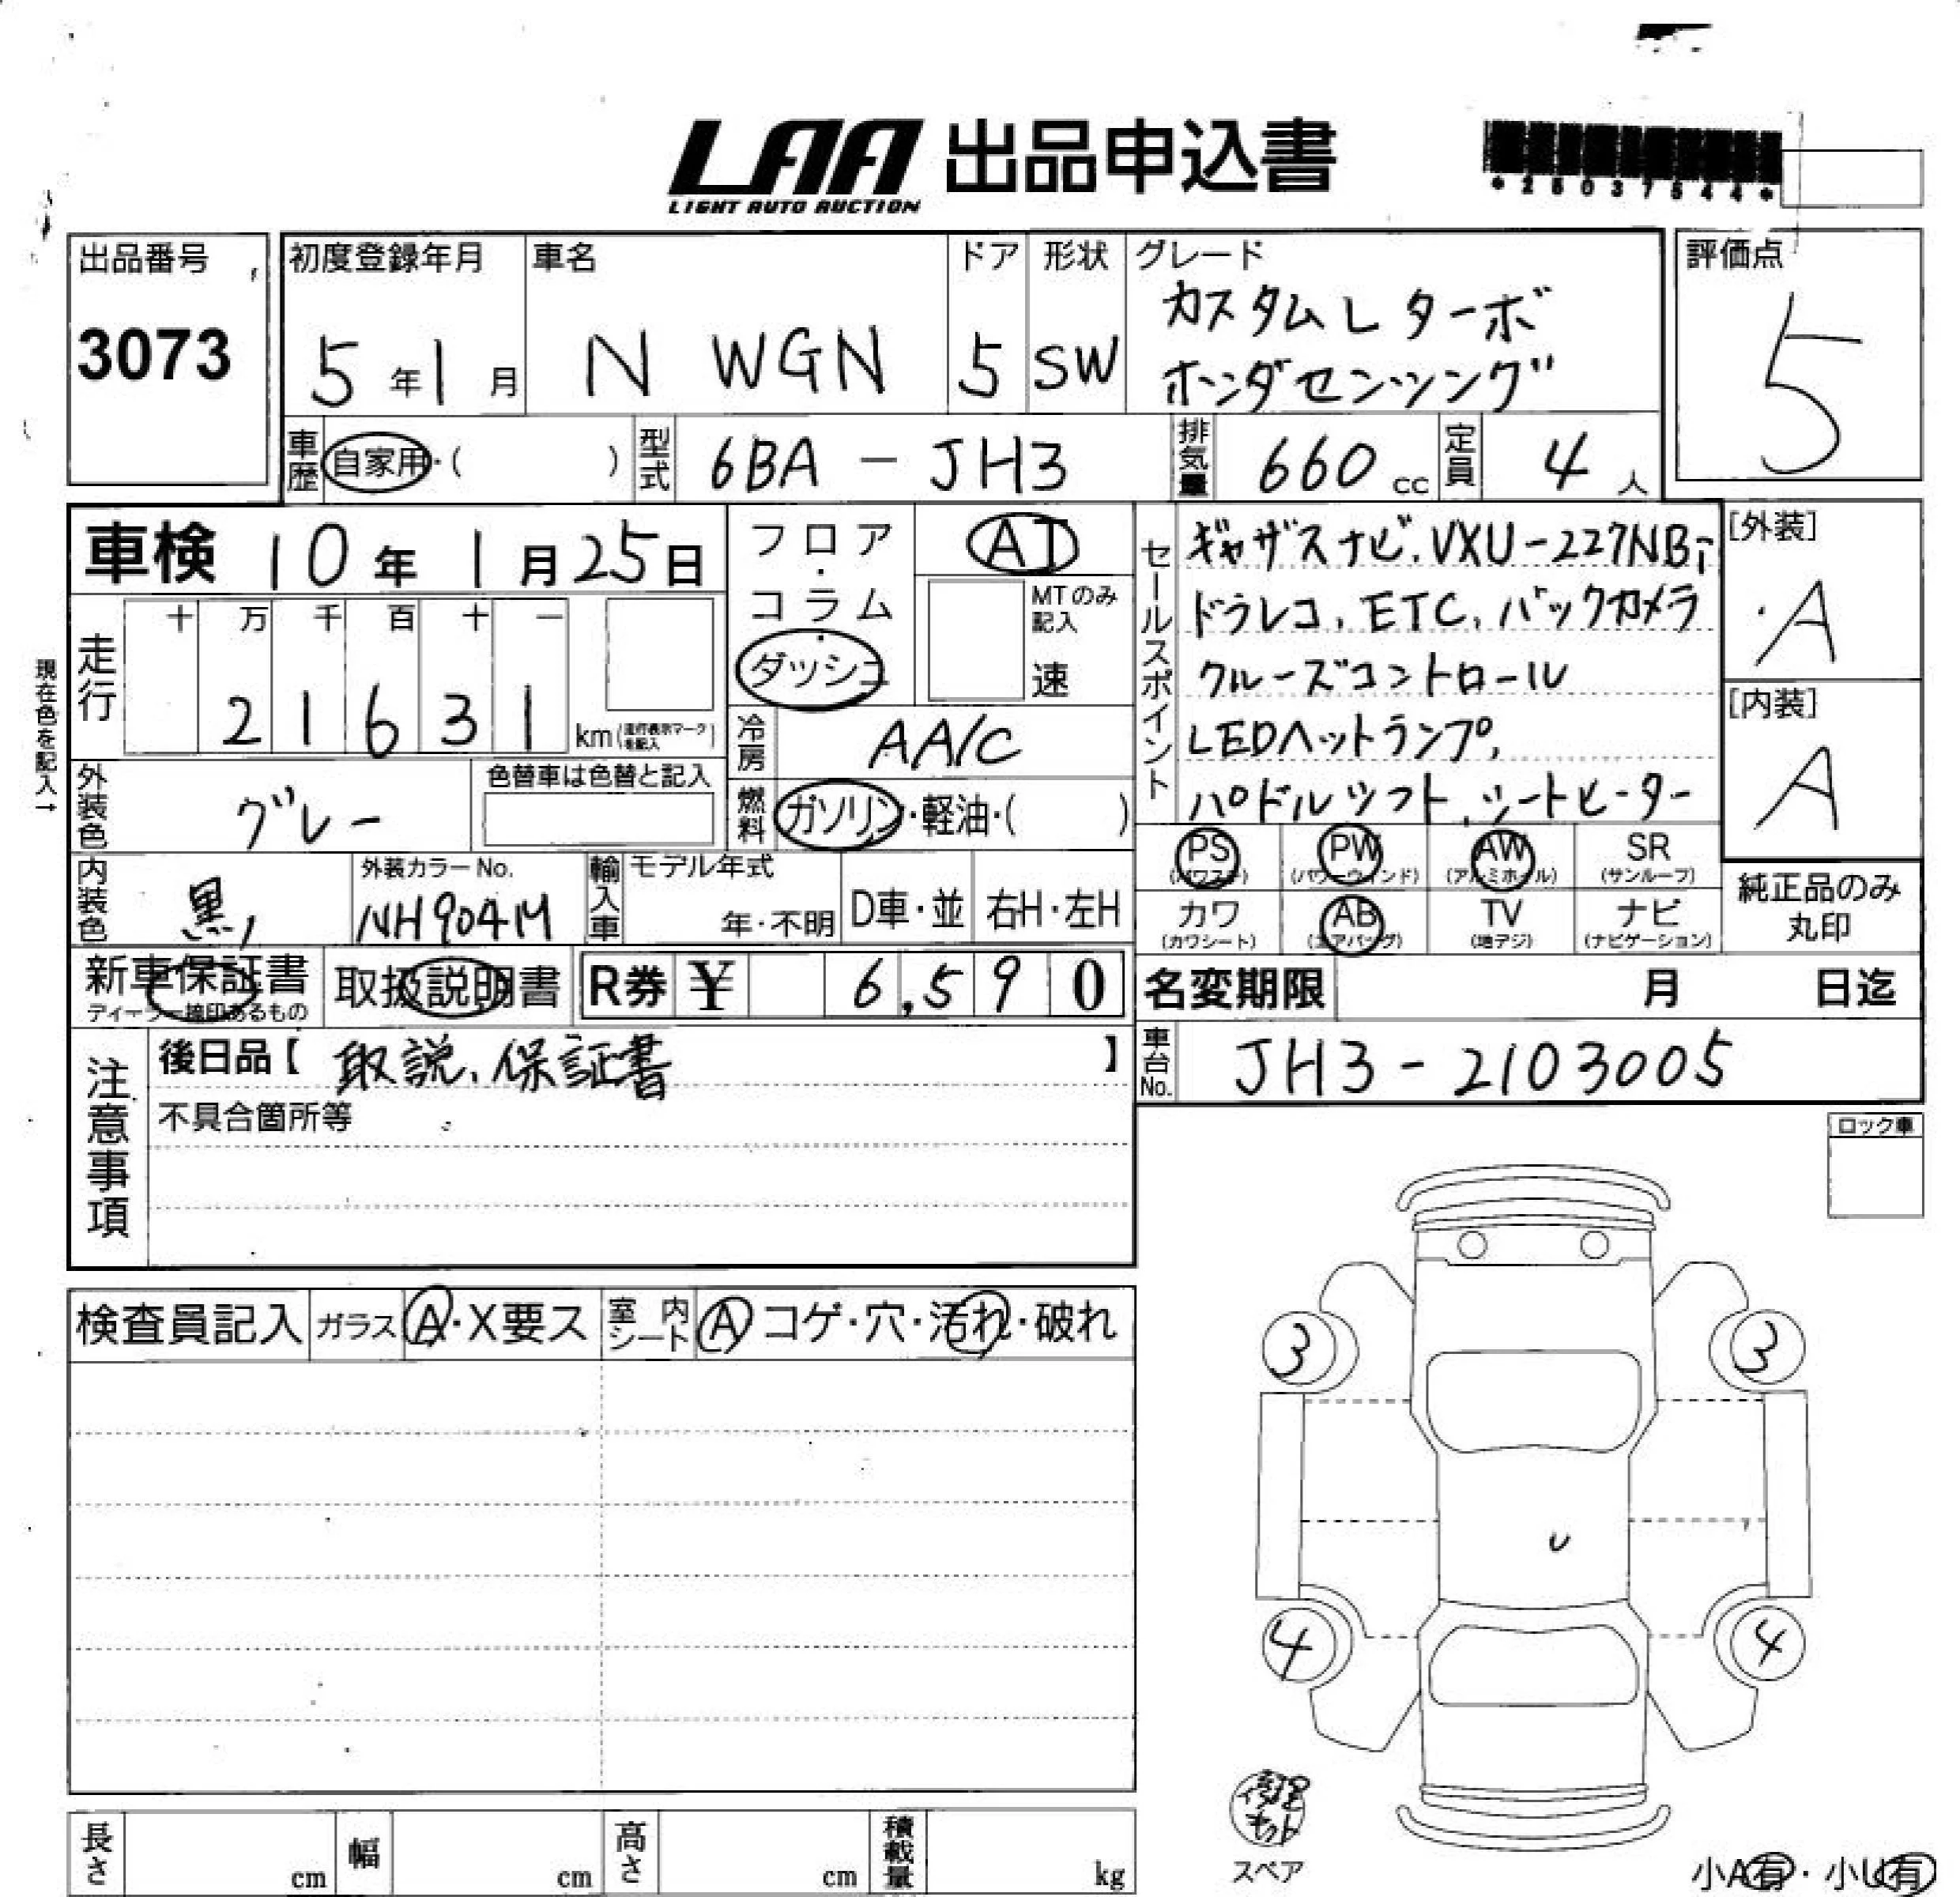 LAA 出品申込書
LIGHT AUTO AUCTION
*25037544*
出品番号
3073
初度登録年月
5年1月
車名
N WGN
ドア
5
形状
SW
グレード
カスタムL ターボ
ホンダセンシング
評価点
5
車歴 自家用・( )
型式 6BA-JH3
排気量 660cc
定員 4人
車検 10年1月25日
フロア・コラム・ダッシュ
AT
MTのみ記入
速
セールスポイント
ギャザズナビ.VXU-227NBi
ドラレコ, ETC, バックカメラ
クルーズコントロール
LEDヘットランプ,
パドルシフト, シートヒーター
[外装]
A
[内装]
A
現在色を記入→
走行
十 万 千 百 十 一
2 1 6 3 1 km(走行表示マークを記入)
冷房 AA/C
外装色 グレー
色替車は色替と記入
燃料 ガソリン・軽油・( )
PS (パワステ) PW (パワーウインド) AW (アルミホイール) SR (サンルーフ)
カワ (カワシート) AB (エアバッグ) TV (地デジ) ナビ (ナビゲーション)
純正品のみ
丸印
内装色 黒
外装カラーNo.
NH904M
輸入車 モデル年式
年・不明 D車・並 右H・左H
新車保証書
ディーラー捺印あるもの
取扱説明書
R券 ¥ 6,590
名変期限 月 日迄
車台No. JH3-2103005
注意事項
後日品【 取説, 保証書 】
不具合箇所等
ロック車
検査員記入 ガラス A・X要ス 室内シート A コゲ・穴・汚れ・破れ
3 3
U
4 4
修理キット
スペア
小A有・小U有
長さ cm 幅 cm 高さ cm 積載量 kg